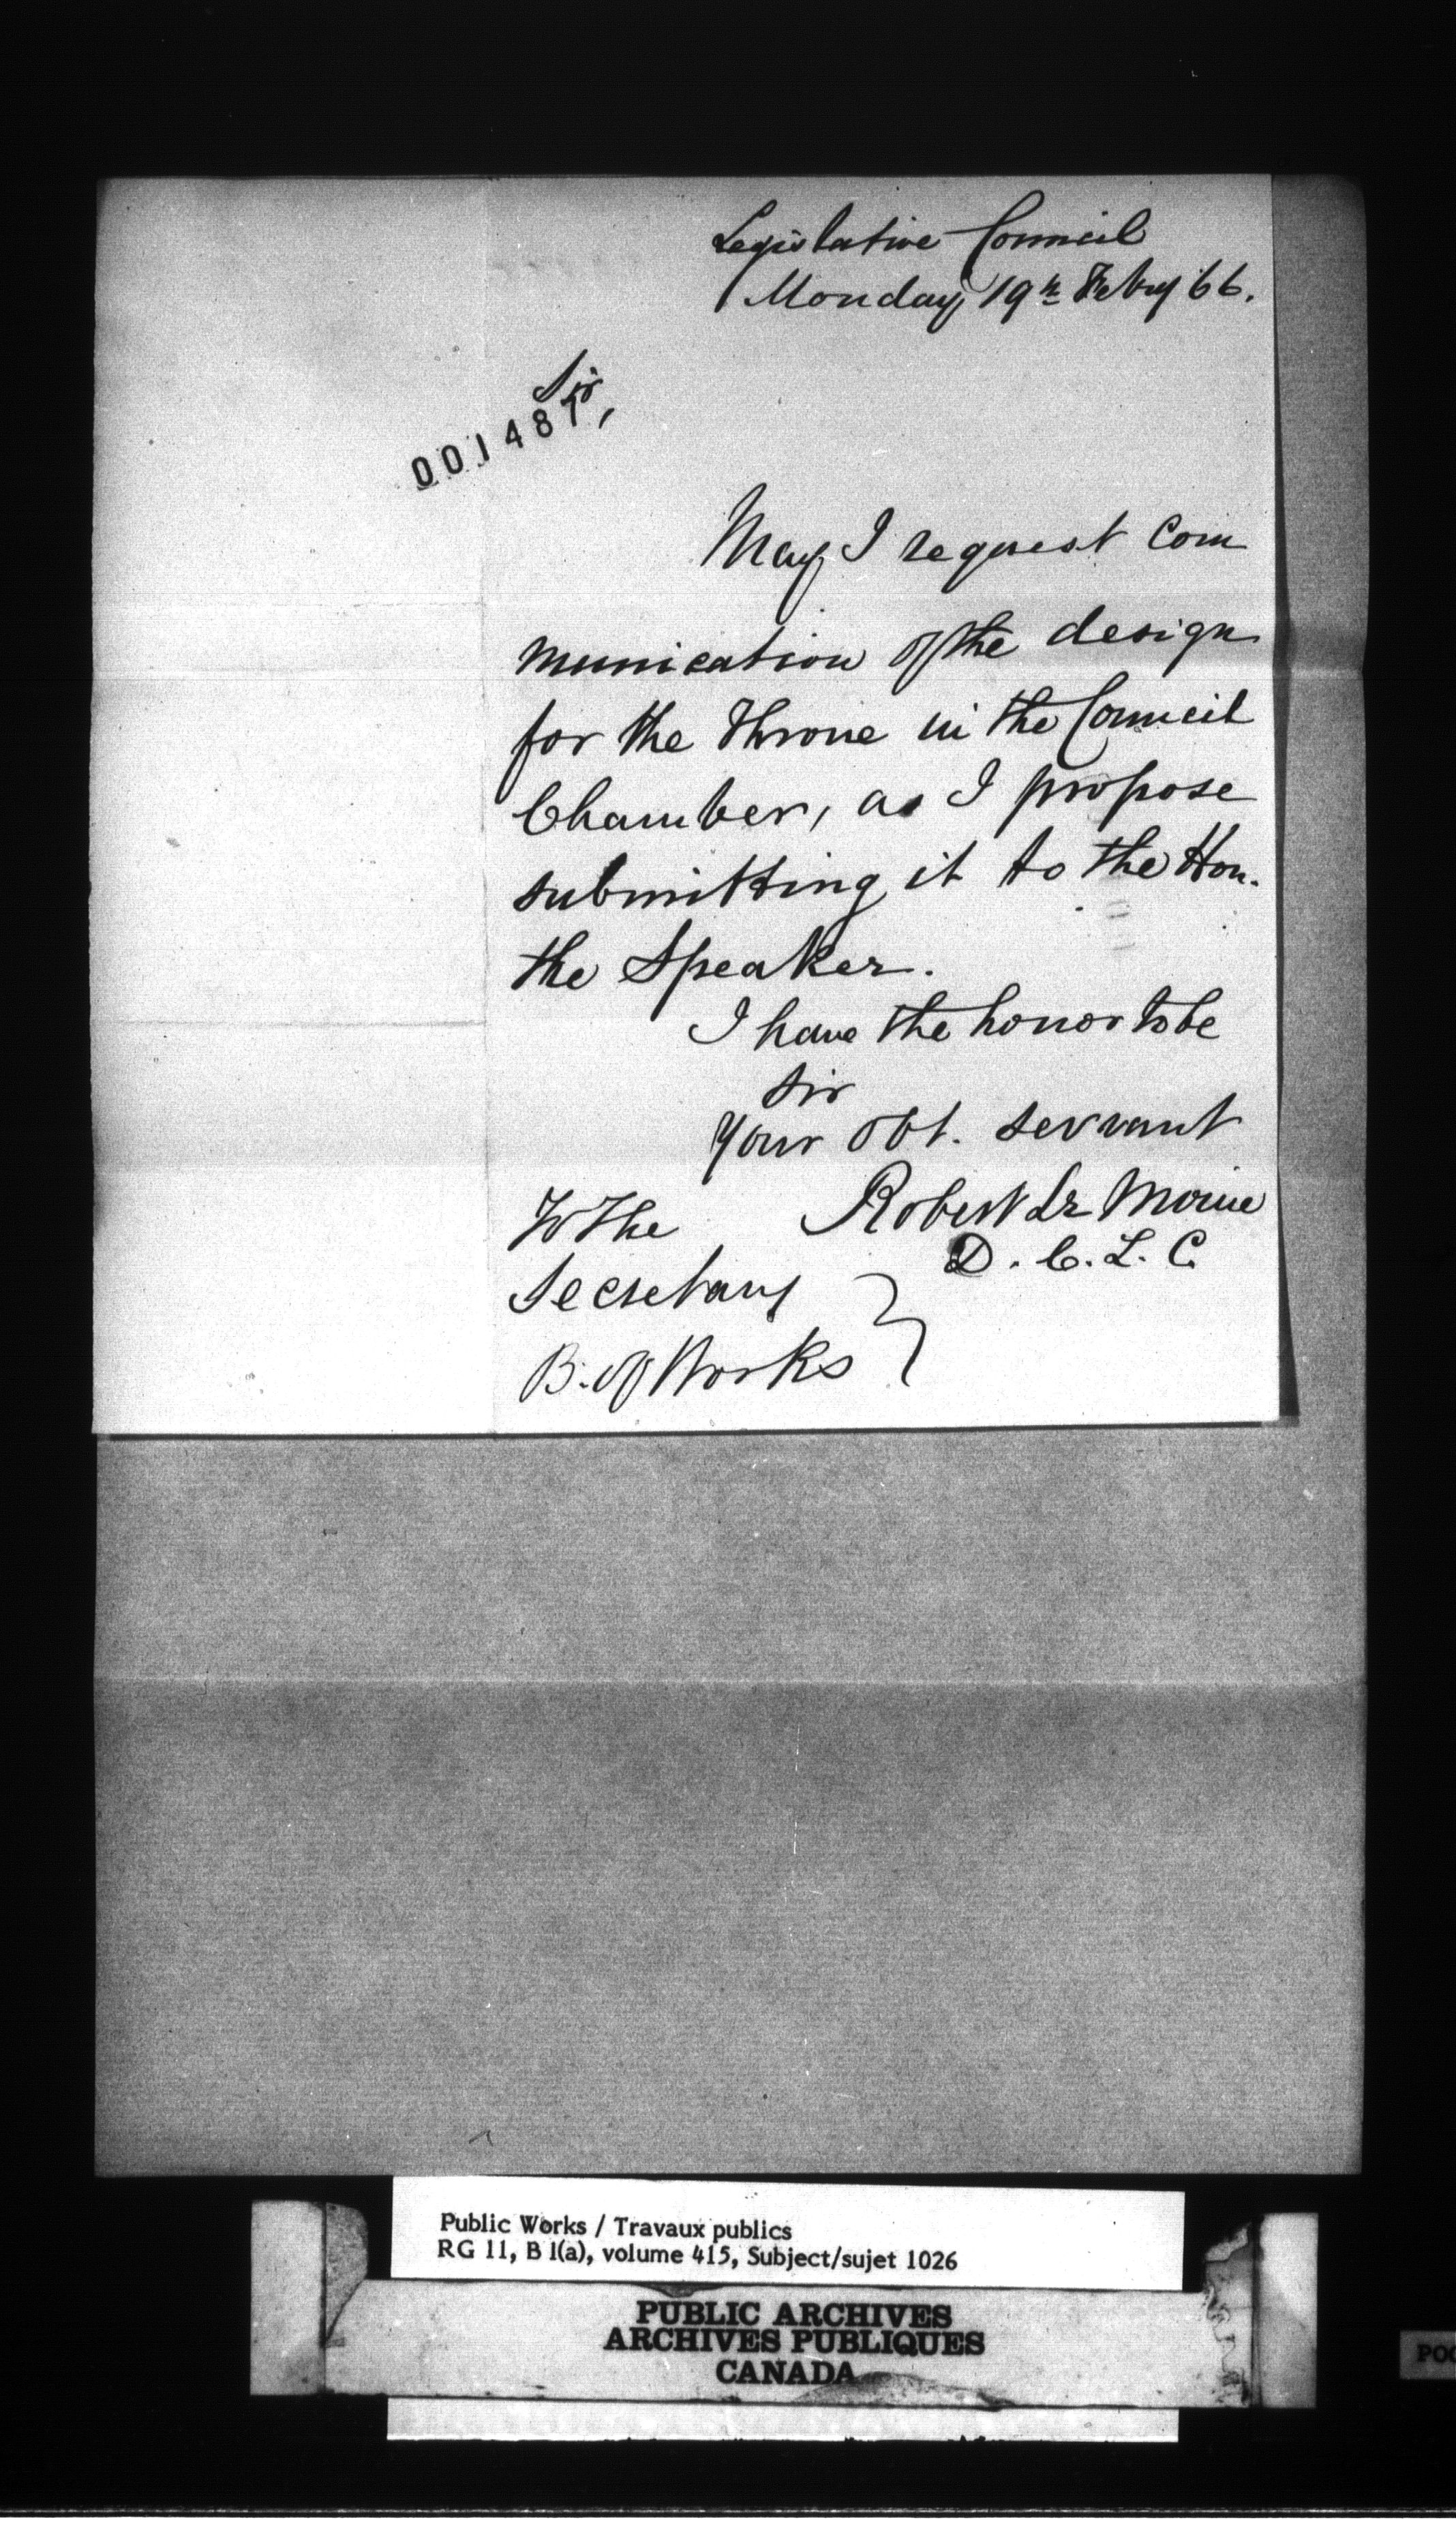 Legislative Council
Monday, 19th Febry 66.
Sir,
001487
May I request Com
munication of the design
for the Throne in the Council
Chamber, as I propose
submitting it to the Hon.
the Speaker.
I have the honor to be
Sir
Your obt. servant
Robert Le Moine
D. C. L. C.
To the
Secretary
B. of Works
Public Works / Travaux publics
RG 11, B 1(a), volume 415, Subject/sujet 1026
PUBLIC ARCHIVES
ARCHIVES PUBLIQUES
CANADA